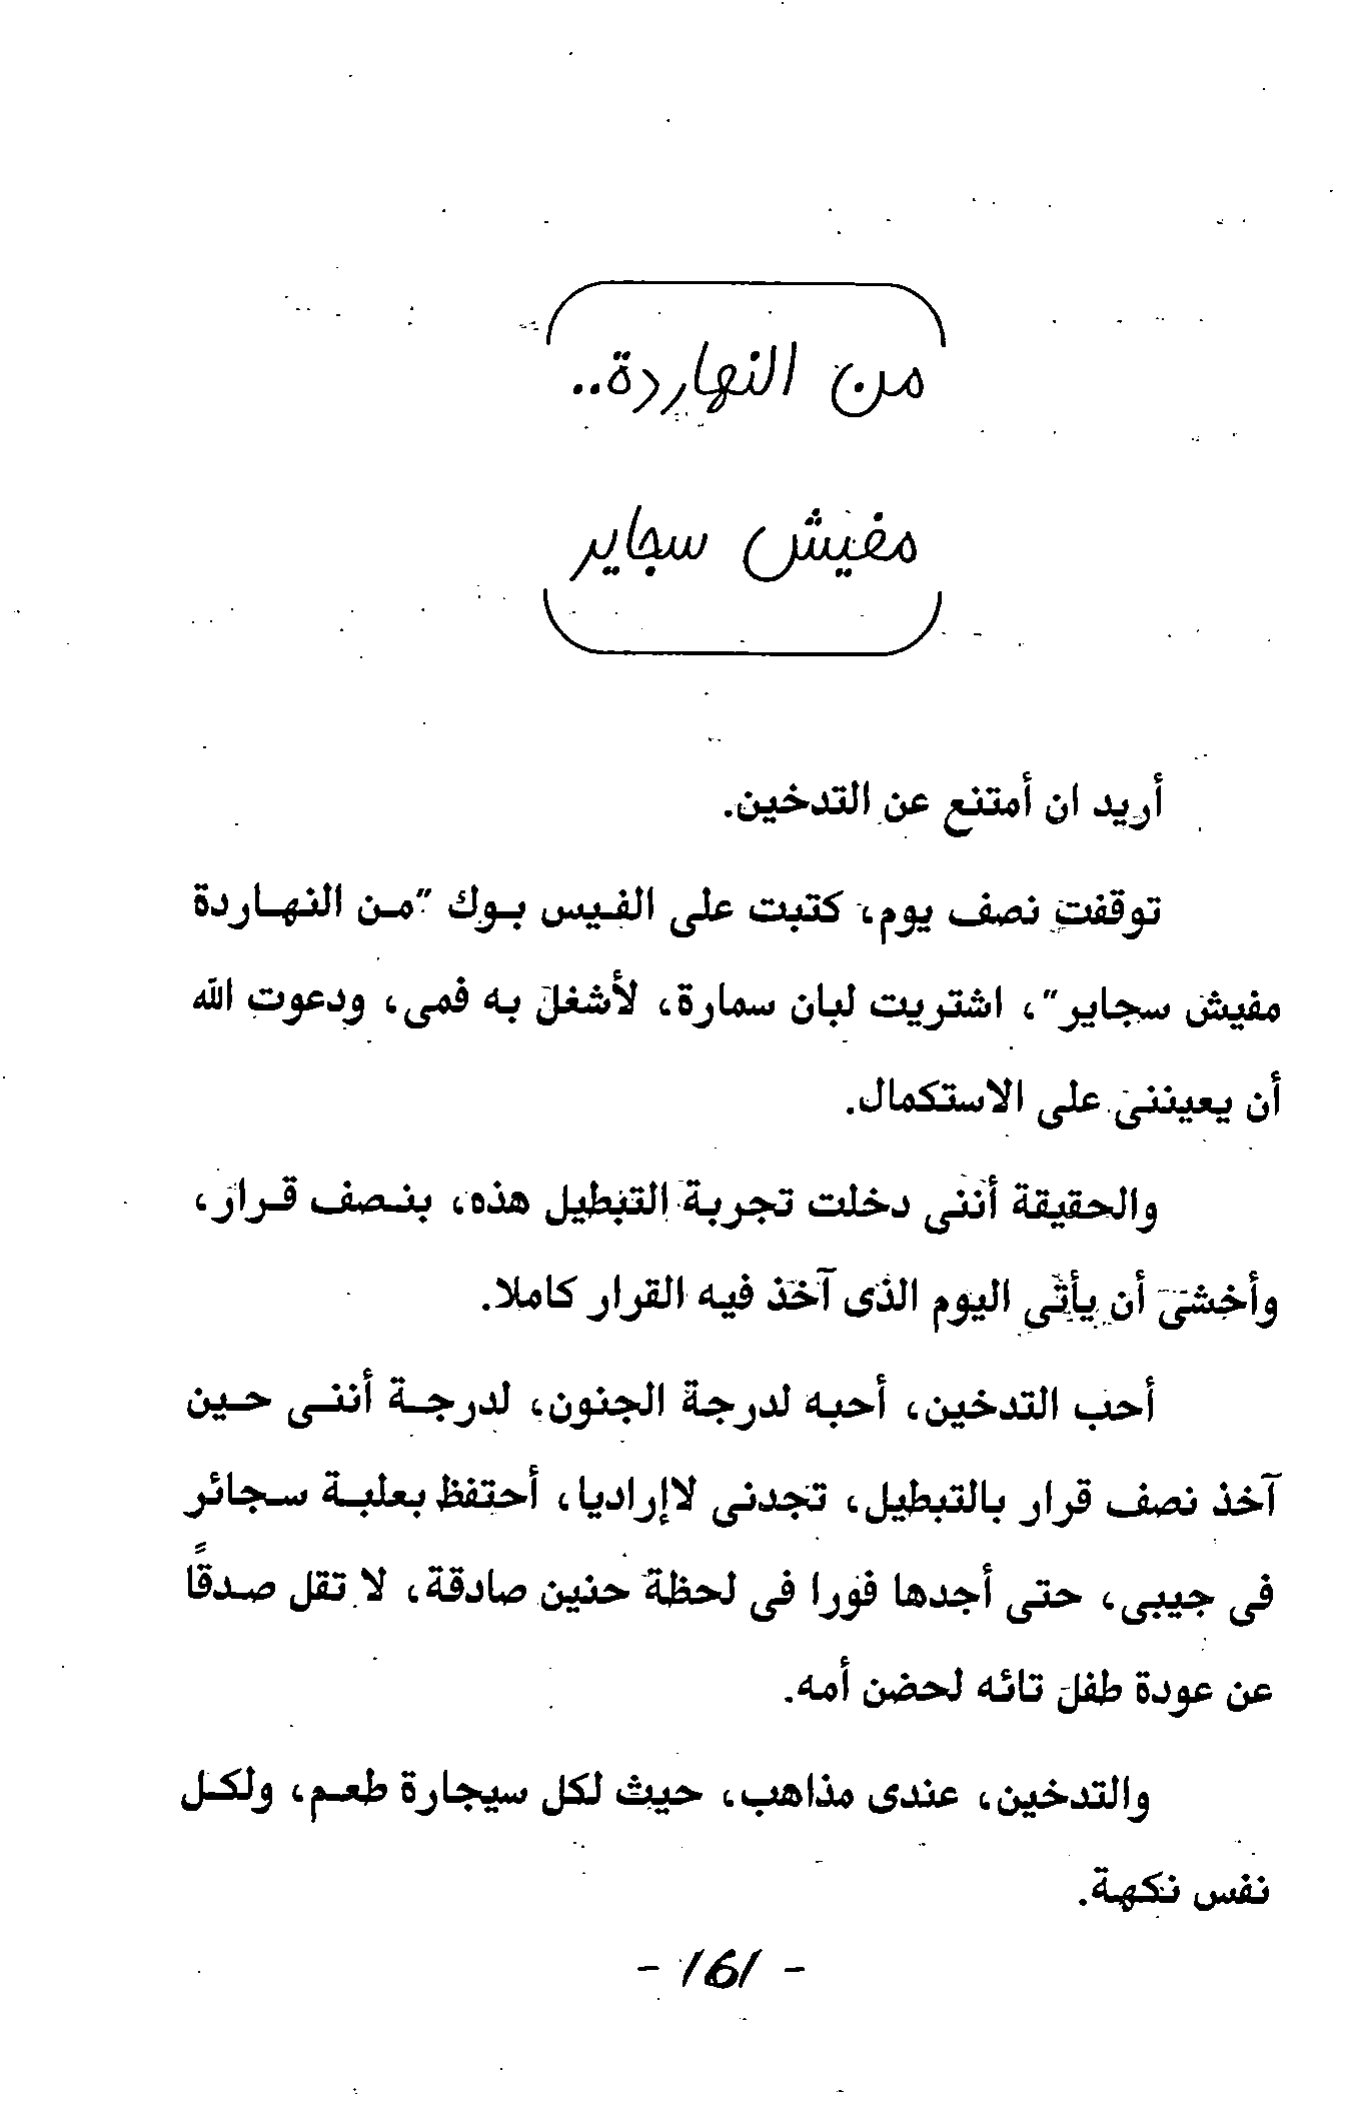 من النهاردة..
مفيش سجاير
أريد ان أمتنع عن التدخين.
توقفت نصف يوم، كتبت على الفيس بوك "من النهاردة
مفيش سجاير"، اشتريت لبان سمارة، لأشغل به فمى، ودعوت الله
أن يعيننى على الاستكمال.
والحقيقة أننى دخلت تجربة التبطيل هذه، بنصف قرار،
وأخشى أن يأتى اليوم الذى آخذ فيه القرار كاملا.
أحب التدخين، أحبه لدرجة الجنون، لدرجة أننى حين
آخذ نصف قرار بالتبطيل، تجدنى لاإراديا، أحتفظ بعلبة سجائر
فى جيبى، حتى أجدها فورا فى لحظة حنين صادقة، لا تقل صدقًا
عن عودة طفل تائه لحضن أمه.
والتدخين، عندى مذاهب، حيث لكل سيجارة طعم، ولكل
نفس نكهة.
- 161 -